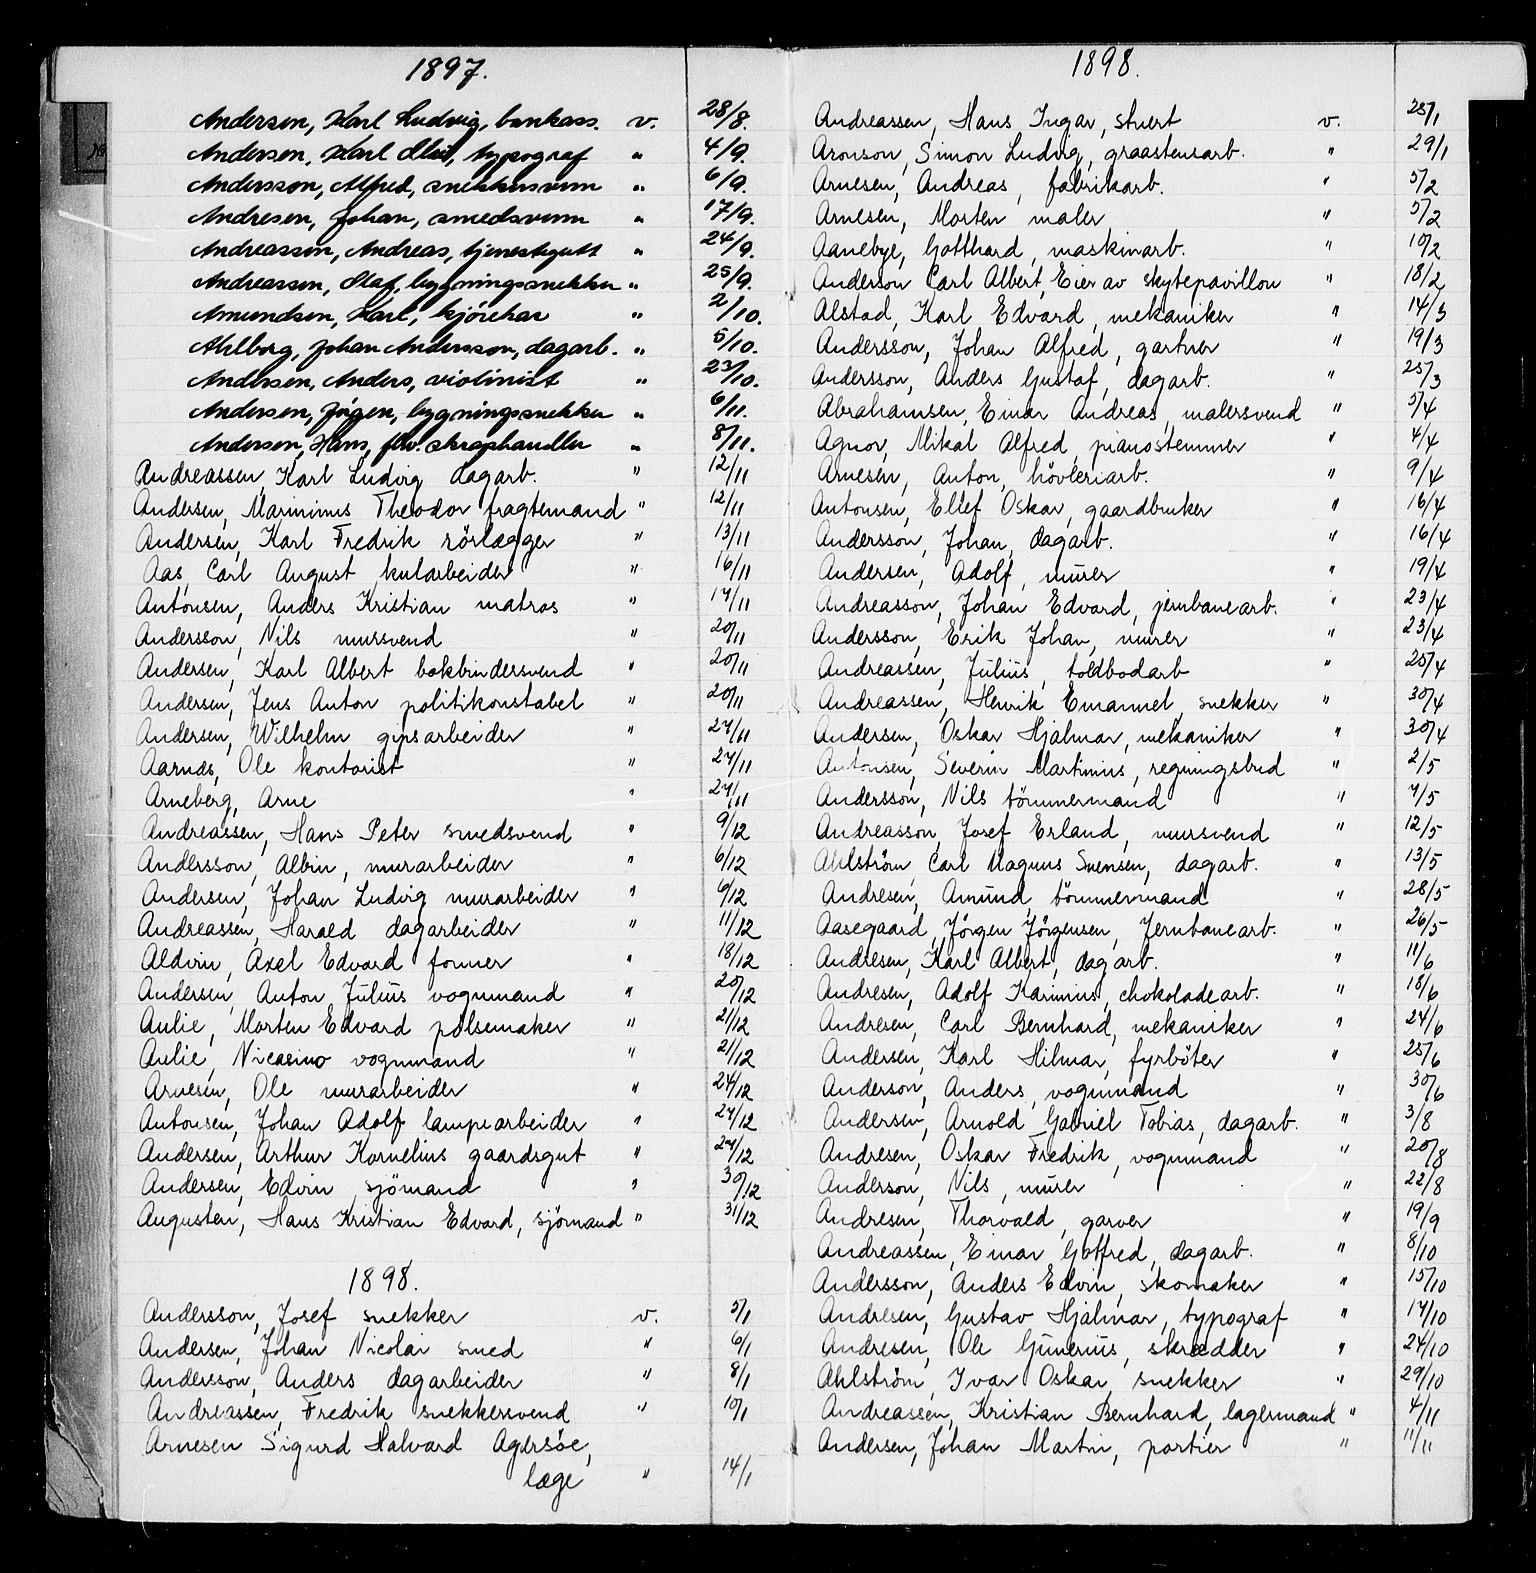 1897.
Andersen, Karl Ludvig, bankass. v. 28/8.
Andersen, Karl Olai, typograf " 4/9.
Andersson, Alfred, snekkersvenn " 6/9.
Andresen, Johan, smedsvenn " 17/9.
Andreassen, Andreas, tjenestegutt " 24/9.
Andreassen, Olaf, bygningssnekker " 25/9.
Amundsen, Karl, kjörekar " 2/10.
Ahlborg, Johan Andersson, dagarb. " 5/10.
Andersen, Anders, violinist " 23/10.
Andersen, Jörgen, bygningssnekker " 6/11.
Andersen, Hans, fhv. skraphandler " 8/11.
Andreassen, Karl Ludvig dagarb. " 12/11
Andersen, Marinius Theodor fragtemand " 12/11
Andersen, Karl Fredrik rörlægger " 13/11
Aas, Carl August kularbeider " 16/11
Antonsen, Anders Kristian matros " 17/11
Andersson, Nils mursvend " 20/11
Andersen, Karl Albert bokbindersvend " 20/11
Andersen, Jens Anton politikonstabel " 20/11
Andersen, Wilhelm gipsarbeider " 27/11
Aarnæs, Ole kontorist " 27/11
Arneberg, Arne " 27/11
Andreassen, Hans Peter smedsvend " 9/12
Andersson, Albin, murarbeider " 6/12
Andersen, Johan Ludvig murarbeider " 6/12
Andreassen, Harald dagarbeider " 11/12
Aldvin, Axel Edvard former " 18/12
Andersen, Anton Julius vognmand " 20/12
Aulie, Morten Edvard pølsemaker " 21/12
Aulie, Nicasino vognmand " 21/12
Arnesen, Ole murarbeider " 24/12
Antonsen, Johan Adolf lampearbeider " 27/12
Andersen, Arthur Kornelius gaardsgut " 27/12
Andersen, Edvin sjömand " 30/12
Augusten, Hans Kristian Edvard, sjömand " 31/12
1898.
Andersson, Josef snekker v. 5/1
Andersen, Johan Nicolai smed " 6/1
Andersson, Anders dagarbeider " 8/1
Andreassen, Fredrik snekkersvend " 10/1
Arnesen Sigurd Halvard Agersöe,
læge " 14/1
1898.
Andreassen, Hans Ingar, stuert v. 25/1
Aronson, Simon Ludvig, graastensarb. " 29/1
Arnesen, Andreas, fabrikarb. " 5/2
Arnesen, Morten maler " 5/2
Aanebye, Gotthard, maskinarb. " 10/2
Anderson Carl Albert, Eier av skytepavillon " 18/2
Alstad, Karl Edvard, mekaniker " 14/3
Andersson, Johan Alfred, gartner " 19/3
Andersson, Anders Gustaf, dagarb. " 25/3
Abrahamsen, Einar Andreas, malersvend " 5/4
Agnor, Mikal Alfred, pianostemmer " 4/4
Arnesen, Anton, hövleriarb. " 9/4
Antonsen, Ellef Oskar, gaardbruker " 16/4
Andersson, Johan, dagarb. " 16/4
Andersen, Adolf, murer " 19/4
Andreasson, Johan Edvard, jernbanearb. " 23/4
Andersson, Erik Johan, murer " 23/4
Andreassen, Julius, toldbodarb " 25/4
Andreassen, Henrik Emanuel, snekker " 30/4
Andersen, Oskar Hjalmar, mekaniker " 30/4
Antonsen, Severin Martinius, regningsbud " 2/5
Andersson, Nils tömmermand " 7/5
Andreasson, Josef Erland, mursvend " 12/5
Ahlström, Carl Magnus Svensen, dagarb. " 13/5
Andresen, Amund, tömmermand " 28/5
Aasegaard, Jörgen Jörgensen, Jernbanearb. " 26/5
Andresen, Karl Albert, dagarb. " 11/6
Andresen, Adolf Karinius, chokoladearb. " 18/6
Andresen, Carl Bernhard, mekaniker " 24/6
Andersen, Karl Hilmar, fyrböter " 25/6
Anderson, Anders, vognmand " 30/6
Andersen, Arnold Gabriel Tobias, dagarb. " 3/8
Andresen, Oskar Fredrik, vognmand " 20/8
Anderson, Nils, murer " 22/8
Andresen, Thorvald, garver " 19/9
Andreassen, Einar Gotfred, dagarb. " 8/10
Andersson, Anders Edvin, skomaker " 15/10
Andresen, Gustav Hjalmar, typograf " 17/10
Andresen, Ole Gunerius, skrædder " 24/10
Ahlström, Ivar Oskar, snekker " 29/10
Andreassen, Kristian Bernhard, lagermand " 4/11
Andersen, Johan Martin, portier " 11/11